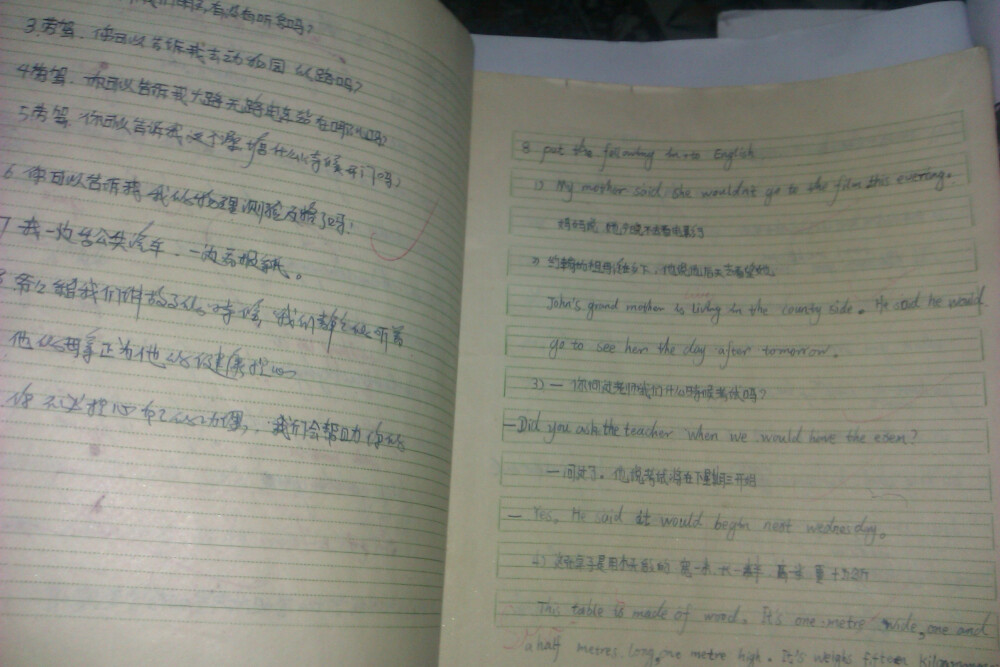 3.劳驾,你可以告诉我去动物园的路吗?
4劳驾.你可以告诉我大路无路电车站在哪儿吗?
5劳驾.你可以告诉我这个展馆什么时候开门吗?
6 你可以告诉我 我的物理测验及格了吗?
7 我一边等公共汽车.一边看报纸。
爷爷给我们讲故事的时候,我们都
他的母亲正为他的健康担心
你不必担心 我们会帮助你的
8 put the following into English
1) My mother said she wouldn't go to the film this evening.
妈妈说 她今晚不去看电影了
2) 约翰的祖母住在乡下,他说他后天去看望她。
John's grand mother is living in the county side. He said he would
go to see her the day after tomorrow.
3) — 你问过老师我们什么时候考试吗?
— Did you ask the teacher when we would have the exem?
— 问过了。他说考试将在下星期三开始
— Yes, He said it would begin next wednesday.
4) 这张桌子是用木头做的 宽一米 长一米半 高一米 重十五公斤
This table is made of wood. It's one metre wide, one and
a half metres long, one metre high. It's weighs fifteen